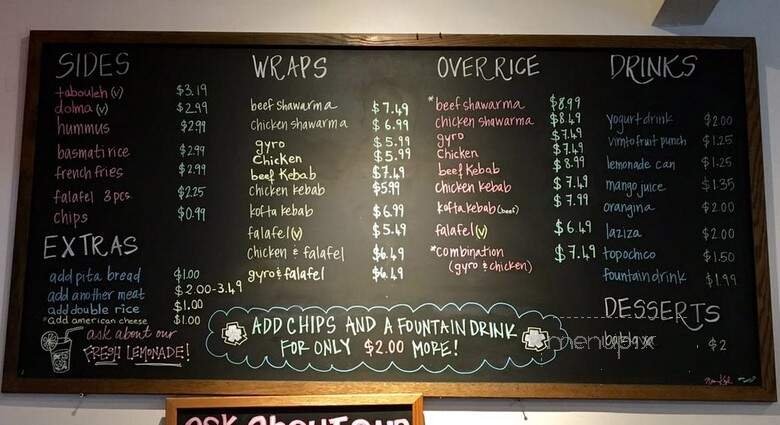 SIDES
tabouleh (v) $3.19
dolma (v) $2.99
hummus $2.99
basmati rice $2.99
french fries $2.99
falafel 3 pcs $2.25
chips $0.99
EXTRAS
add pita bread $1.00
add another meat $2.00-3.49
add double rice $1.00
*add american cheese $1.00
ask about our
FRESH LEMONADE!
WRAPS
beef shawarma $7.49
chicken shawarma $6.99
gyro $5.99
Chicken $5.99
beef Kebab $7.49
chicken kebab $5.99
kofta kebab $6.99
falafel (v) $5.49
chicken & falafel $6.49
gyro & falafel $6.49
OVER RICE
*beef shawarma $8.99
chicken shawarma $8.49
gyro $7.49
Chicken $7.49
beef Kebab $8.99
chicken kebab $7.49
kofta kebab (beef) $7.99
falafel (v) $6.49
*combination $7.49
(gyro & chicken)
DRINKS
yogurt drink $2.00
vimto fruit punch $1.25
lemonade can $1.25
mango juice $1.35
orangina $2.00
laziza $2.00
topochico $1.50
fountain drink $1.99
DESSERTS
baklava $2
ADD CHIPS AND A FOUNTAIN DRINK
FOR ONLY $2.00 MORE!
menupix
ask about our